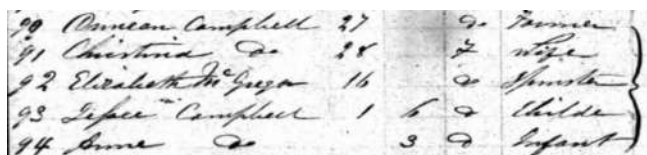 90 Duncan Campbell 27 do Farmer
91 Christina do 28 F Wife
92 Elizabeth McGregor 16 do Spinster
93 Campbell 1 6 do Childe
94 Anne do 3 do Infant